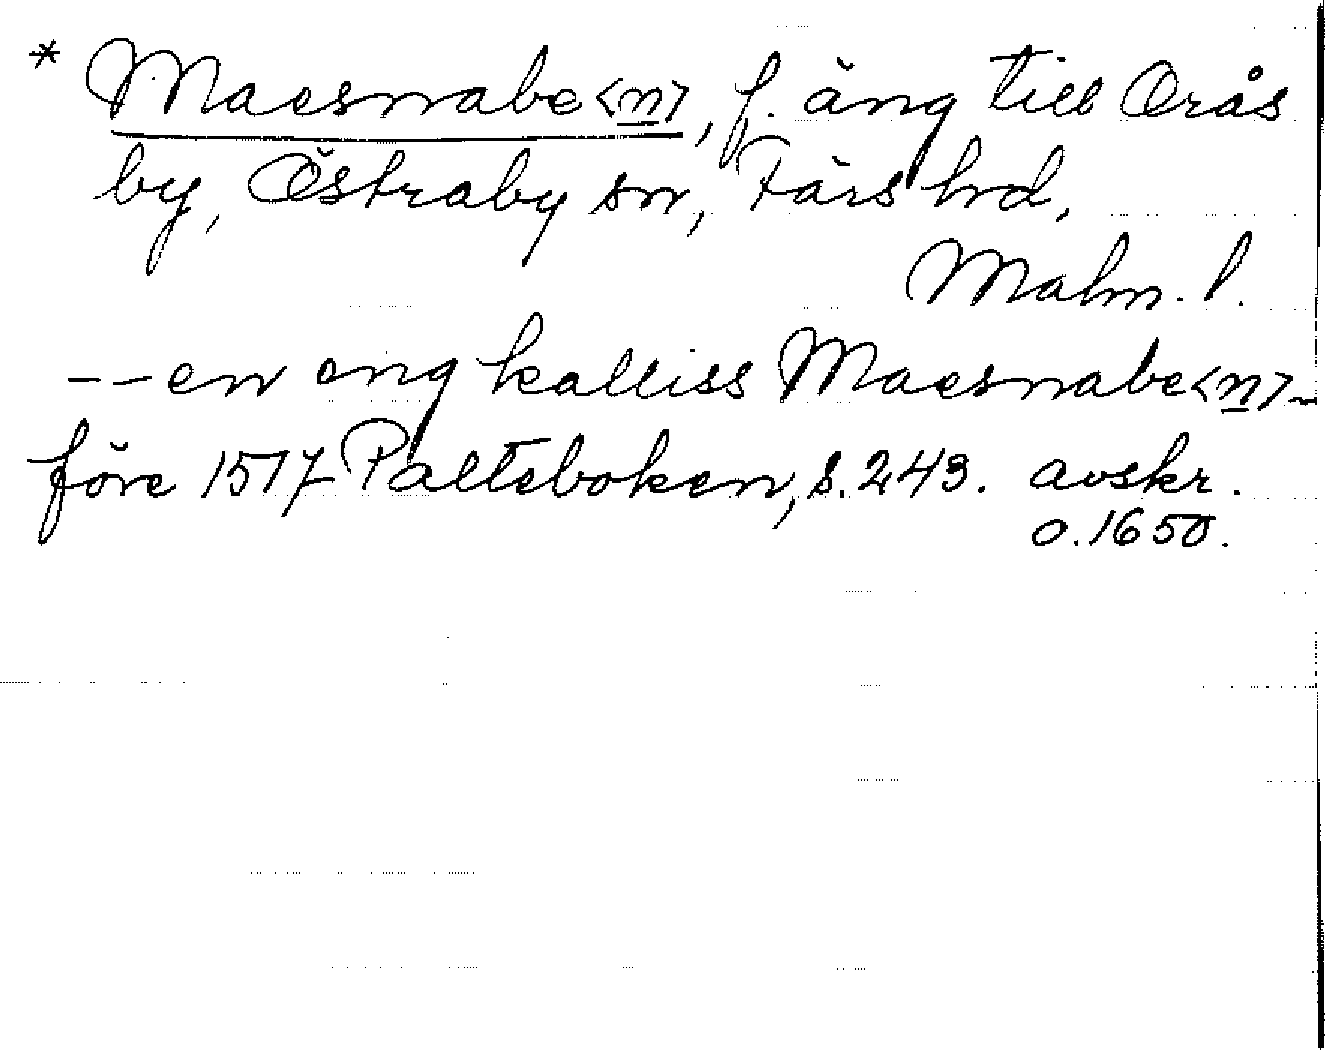 * Maesnabe<n>, f. äng till Orås
by, Östraby sn, Färs hd,
Malm. l.
-- en eng kalliss Maesnabe<n> -
före 1517 Palteboken, s. 243. avskr.
o. 1650.